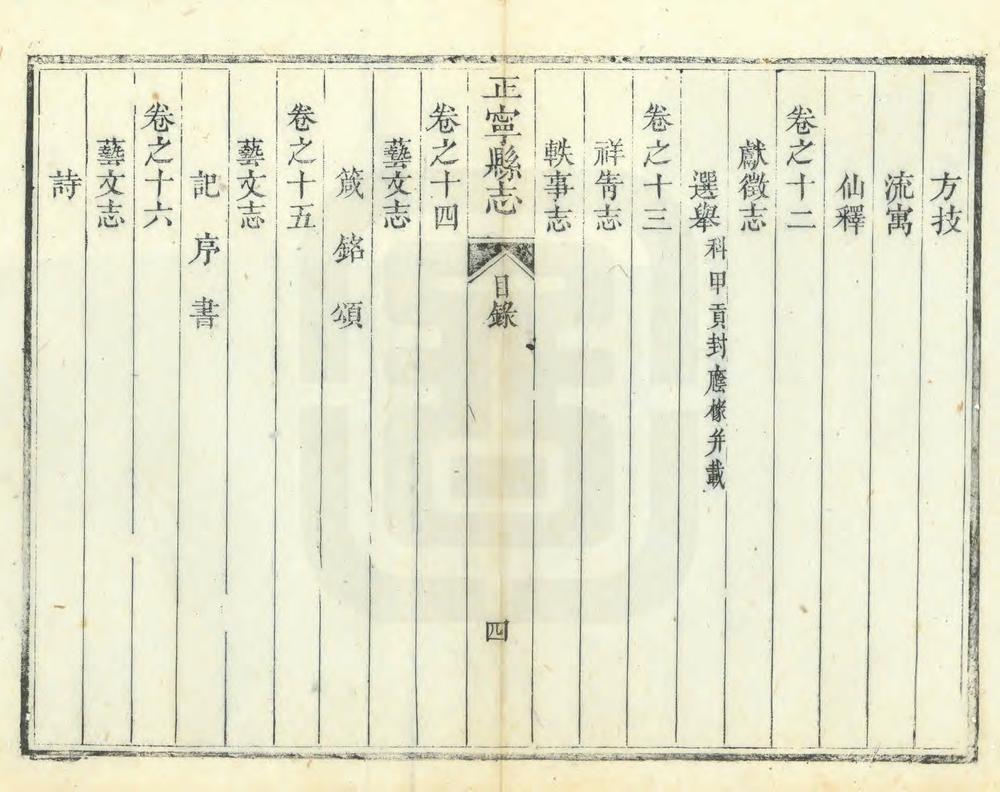 方技
流寓
仙釋
卷之十二
獻徵志
選舉科甲貢封廕掾并載
卷之十三
祥眚志
軼事志
正寧縣志
目錄
四
卷之十四
藝文志
箴 銘 頌
卷之十五
藝文志
記 序 書
卷之十六
藝文志
詩